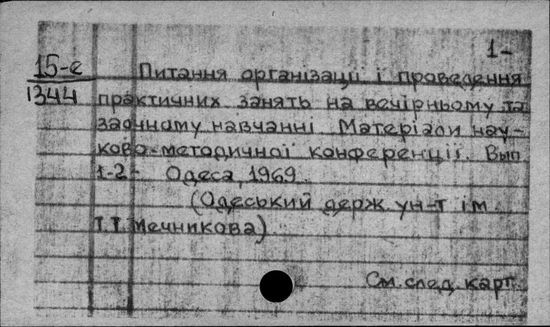 1-
15-е Питання організації і проведення
1344 практичних занять на вечірньому та
заочному навчанні Матеріали нау-
ково-методичної конференції. Вып
1-2- Одеса, 1969.
(Одеський держ. ун-т ім
І.І. Мечникова)
См. след. карт.